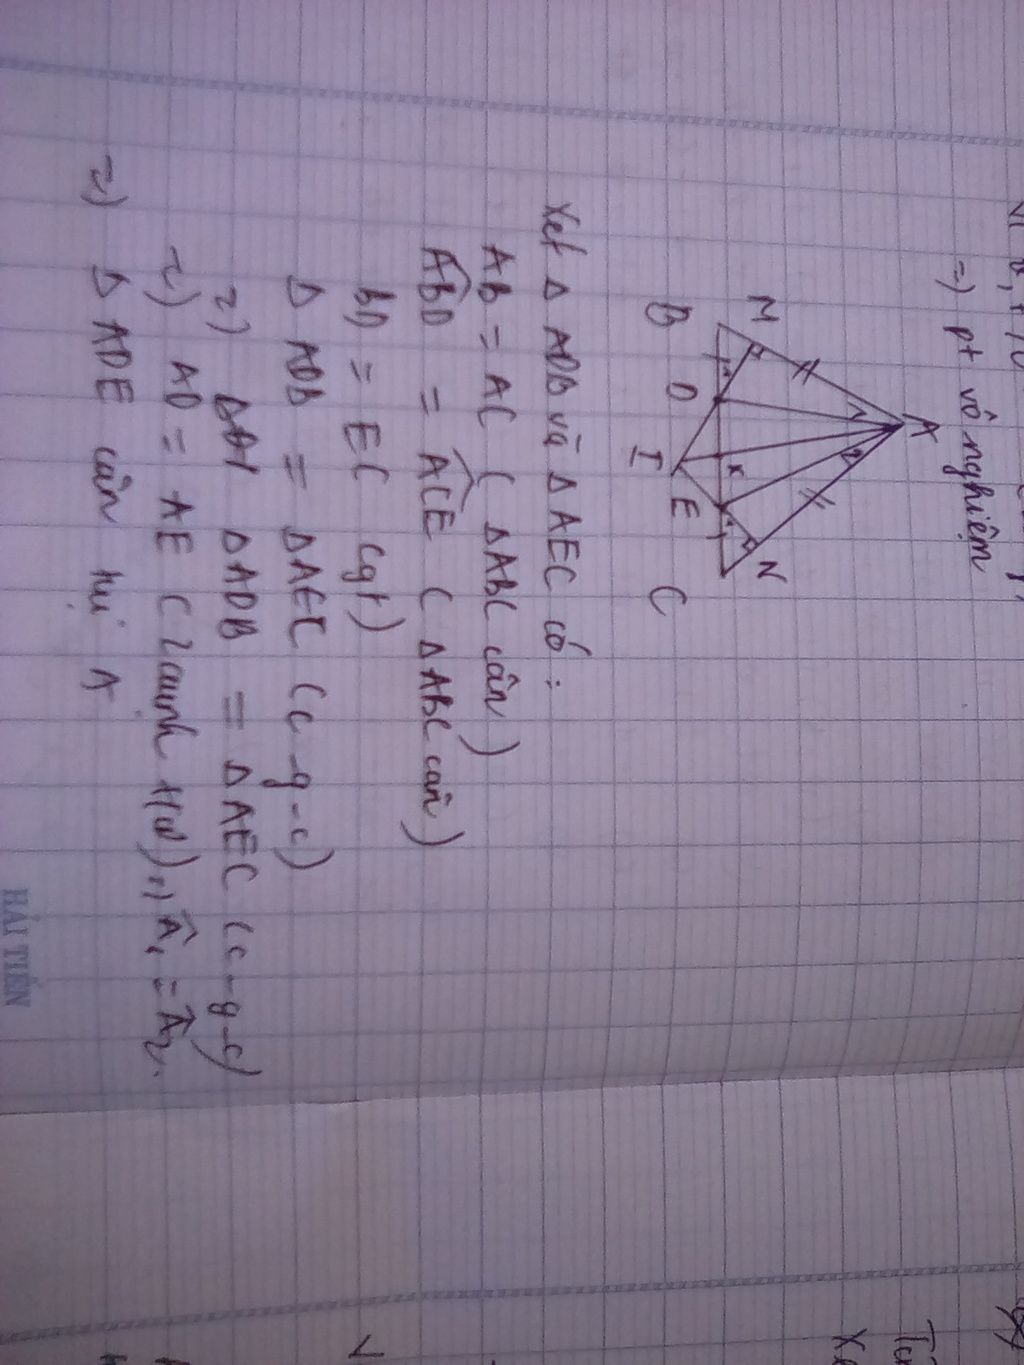 =) pt vô nghiệm
A
1 2
M
N
B
D
K
I
E
C
Xét Δ ADB và Δ AEC có:
AB = AC ( Δ ABC cân )
ABD = ACE ( Δ ABC cân )
BD = EC (gt)
Δ ADB = Δ AEC (c-g-c)
2) Δ ADB = Δ AEC (c-g-c)
=) AD = AE ( 2 cạnh ) =) Â₁ = Â₂
=) Δ ADE cân tại A
HẢI TIẾN